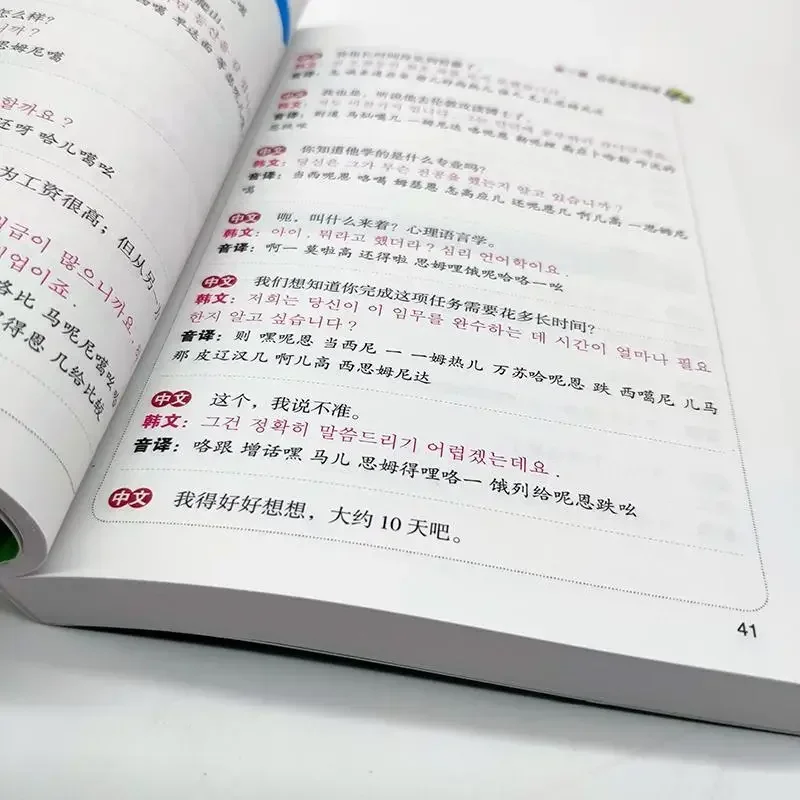 怎么样?
思姆尼噶
할까요?
还呀 哈儿噶吆
为工资很高;但从另一
급이 많으니까요.
기업이죠.
马呢尼噶吆
得恩 几给比较
中文
韩文:
音译:
中文
韩文:
音译:
中文 你知道他学的是什么专业吗?
韩文: 당신은 그가 무슨 전공을 했는지 알고 있습니까?
音译: 当西呢恩 咯噶 姆瑟恩 怎高应儿 还呢恩几 啊儿高 一思姆尼
噶
中文 呃,叫什么来着?心理语言学。
韩文: 아이, 뭐라고 했더라? 심리 언어학이요.
音译: 啊一 莫啦高 还得啦 思姆哩饿呢哈咯一吆
中文 我们想知道你完成这项任务需要花多长时间?
韩文: 저희는 당신이 이 임무를 완수하는 데 시간이 얼마나 필요
한지 알고 싶습니다?
音译: 则 嘿呢恩 当西尼 一 一姆热儿 万苏哈呢恩 跌 西噶尼 儿马
那 皮辽汉几 啊儿高 西思姆尼达
中文 这个,我说不准。
韩文: 그건 정확히 말씀드리기 어렵겠는데요.
音译: 咯跟 增话嘿 马儿 思姆得哩咯一 饿列给呢恩跌吆
中文 我得好好想想,大约10天吧。
41